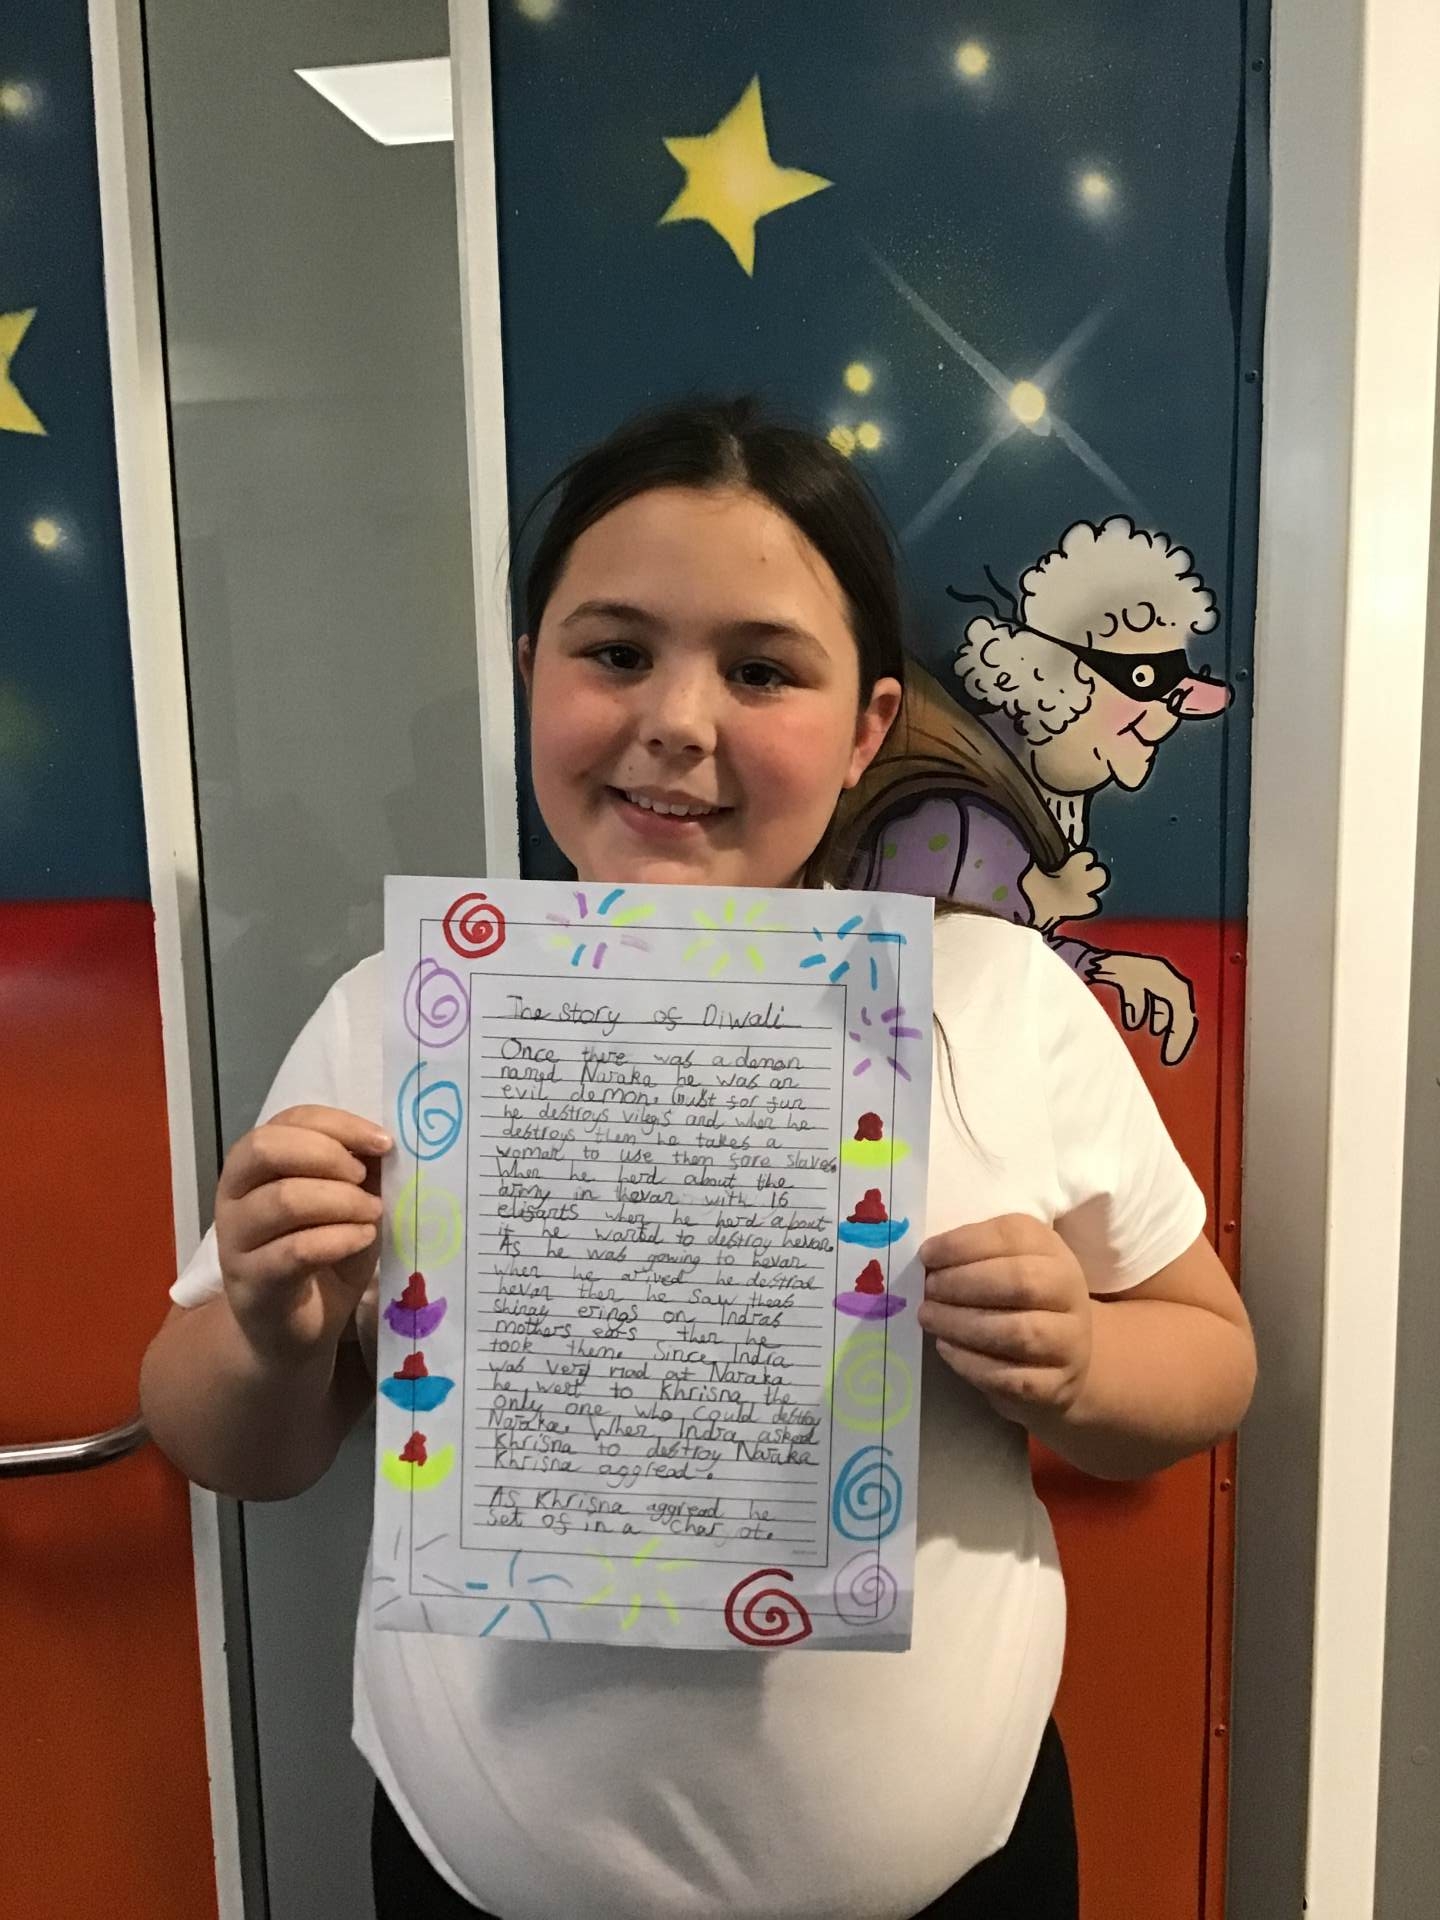 The Story of Diwali
Once there was a demon
named Naraka he was an
evil demon. Just for fun
he destroys vilegs and when he
destroys them he takes a
woman to use them fore slaves.
When he herd about the
army in hevan with 16
elisants when he herd about
it he wanted to destroy hevan.
As he was gowing to hevan
when he arived he destrod
hevan then he saw theas
shinay erings on Indras
mothers ears then he
took them. Since Indra
was very mad at Naraka
he went to Khrisna the
only one who could destroy
Naraka. When Indra asked
Khrisna to destroy Naraka
Khrisna aggread.
As Khrisna aggread he
set of in a charyot.